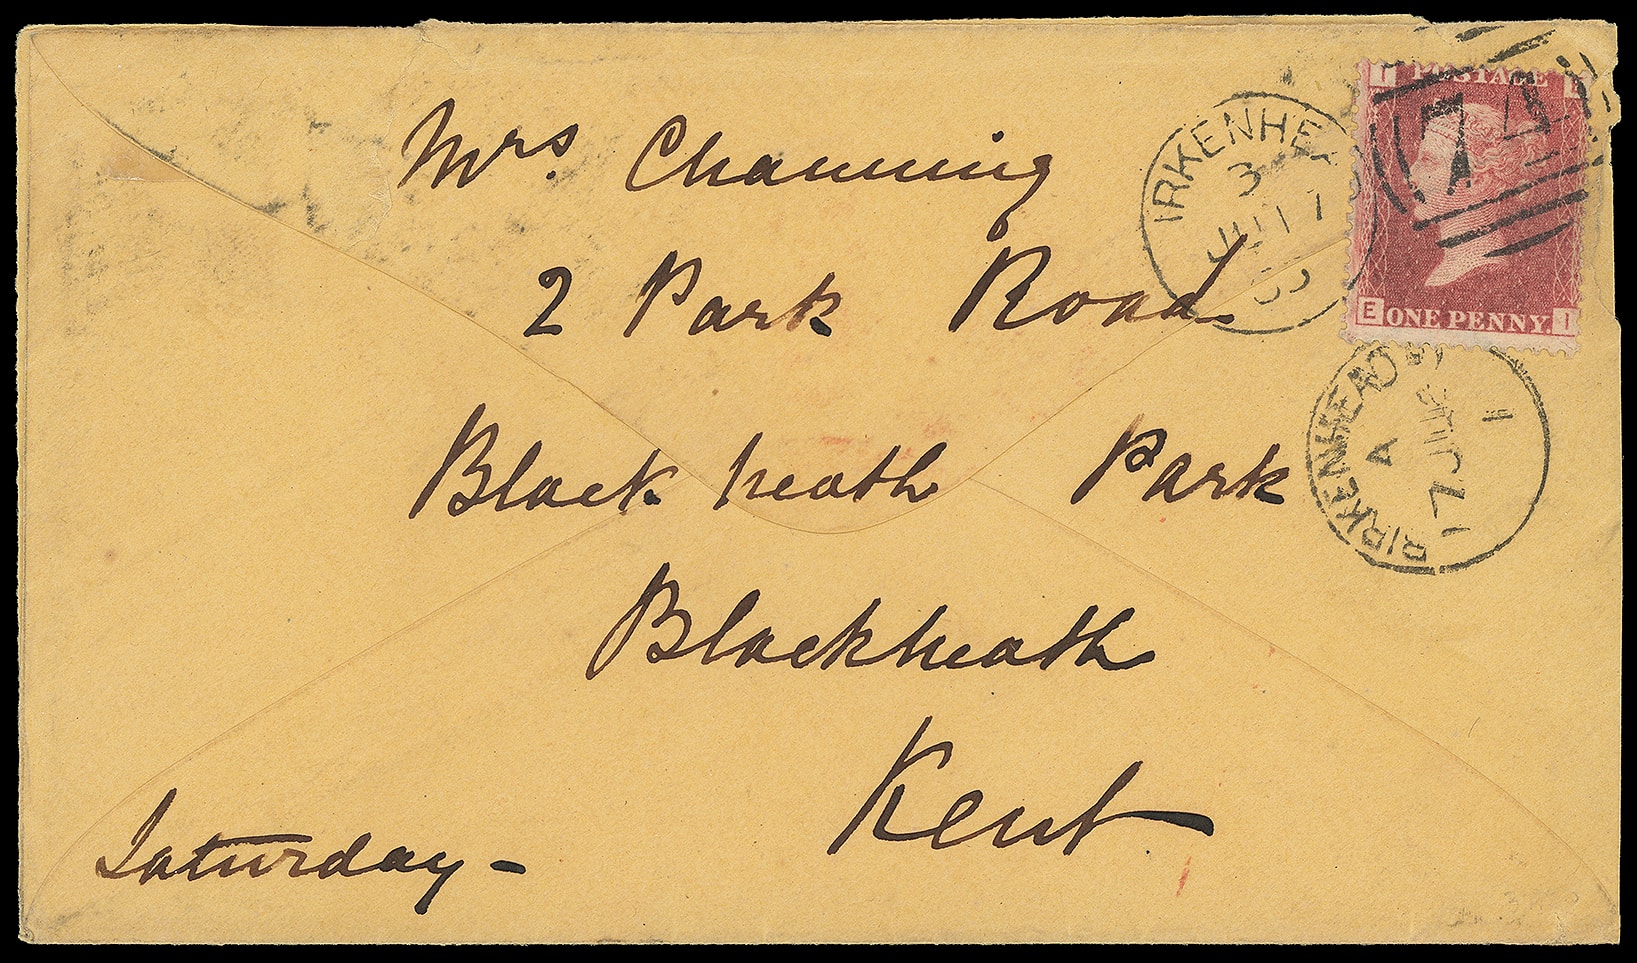 Mrs. Channing
2 Park Road
Black heath Park
Blackheath
Kent
Saturday -
POSTAGE
E ONE PENNY I
74
IRKENHE
3
JU 17
BIRKENHEAD
A
JU 17